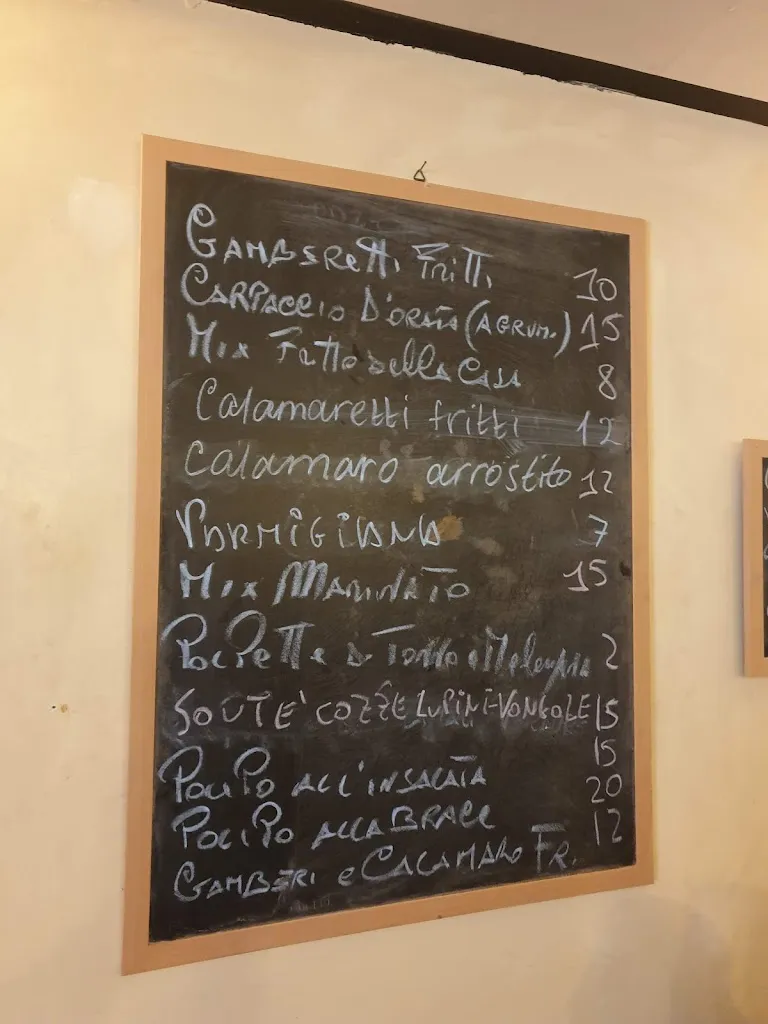 GAMBERETTI FRITTI 10
CARPACCIO D'ORATA (AGRUM.) 15
MIX FATTO DELLA CASA 8
Calamaretti fritti 12
Calamaro arrostito 12
PARMIGIANA 7
MIX MARINATO 15
POLPETTE DI TONNO e Melenzana 2
SOUTE' COZZE LUPINI-VONGOLE 15
POLIPO ALL'INSALATA 15
POLIPO ALLA BRACE 20
GAMBERI e CALAMARO FR. 12